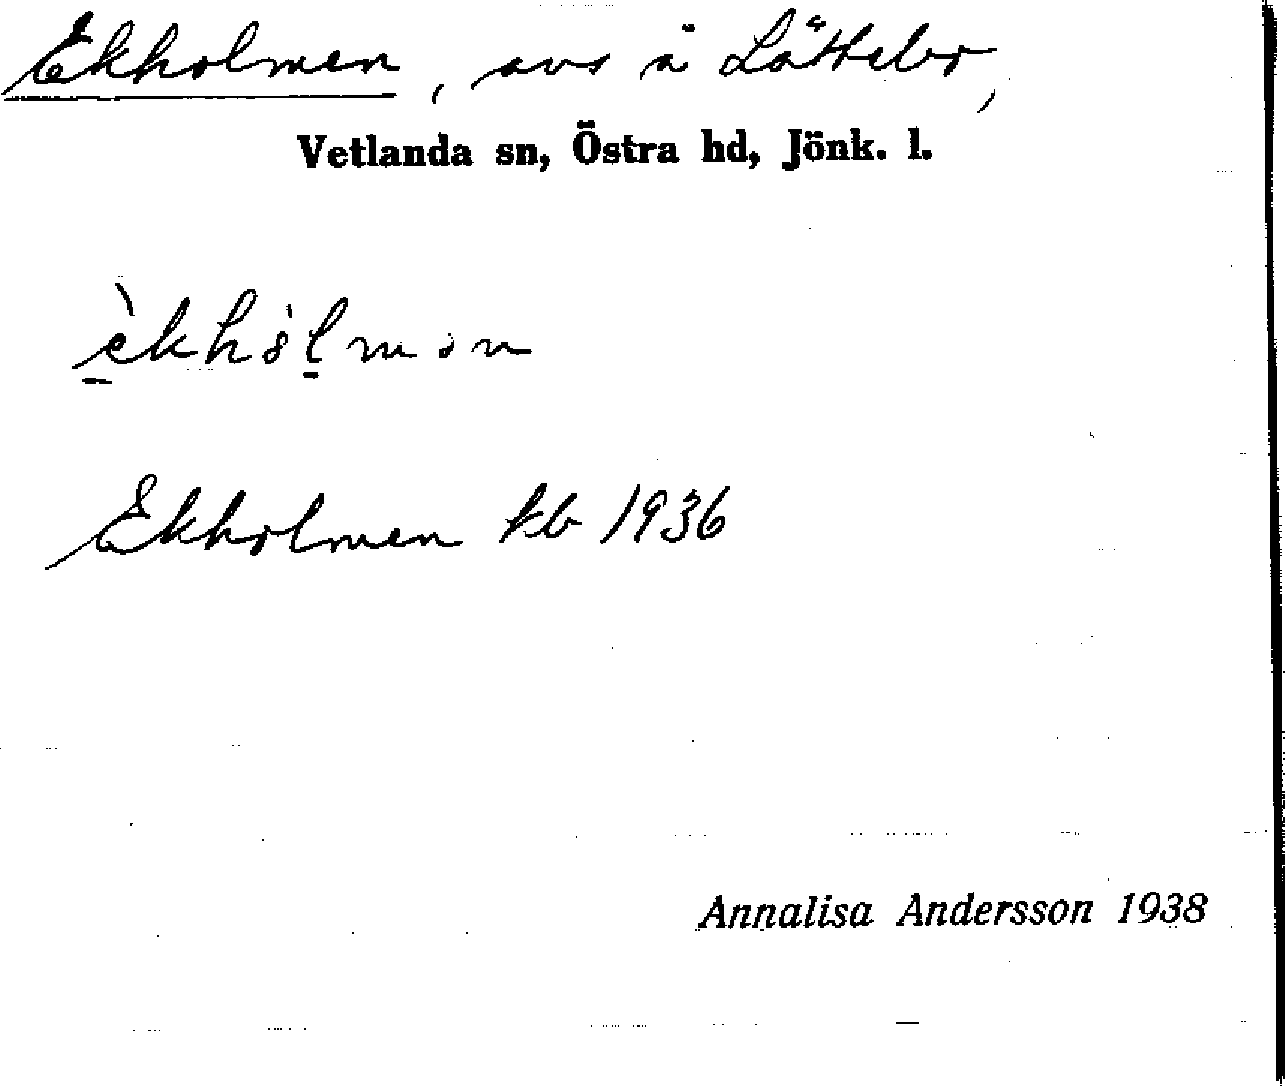 Ekholmen, avs å Lättebo,
Vetlanda sn, Östra hd, Jönk. l.
Ekholmen kb 1936
Annalisa Andersson 1938